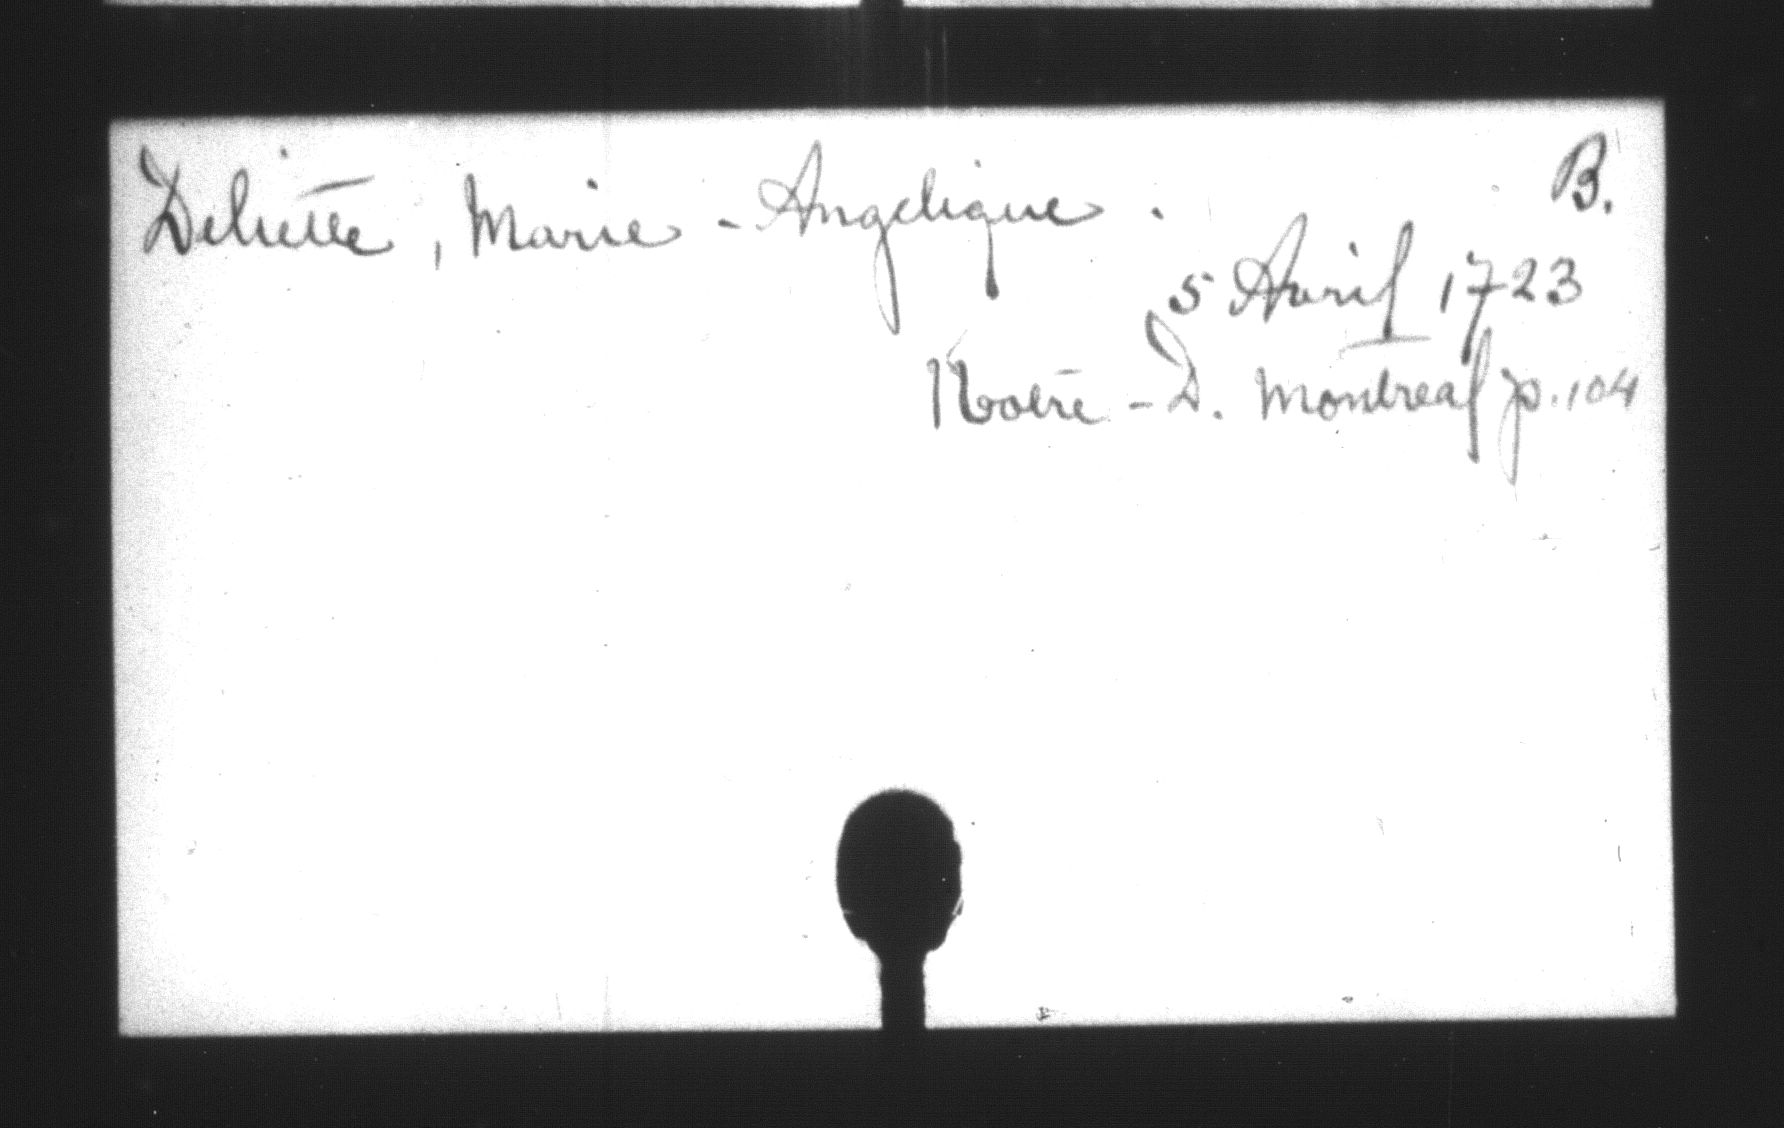 Deliette, Marie-Angelique. B.
5 Avril 1723
Notre-D. Montreal p.104